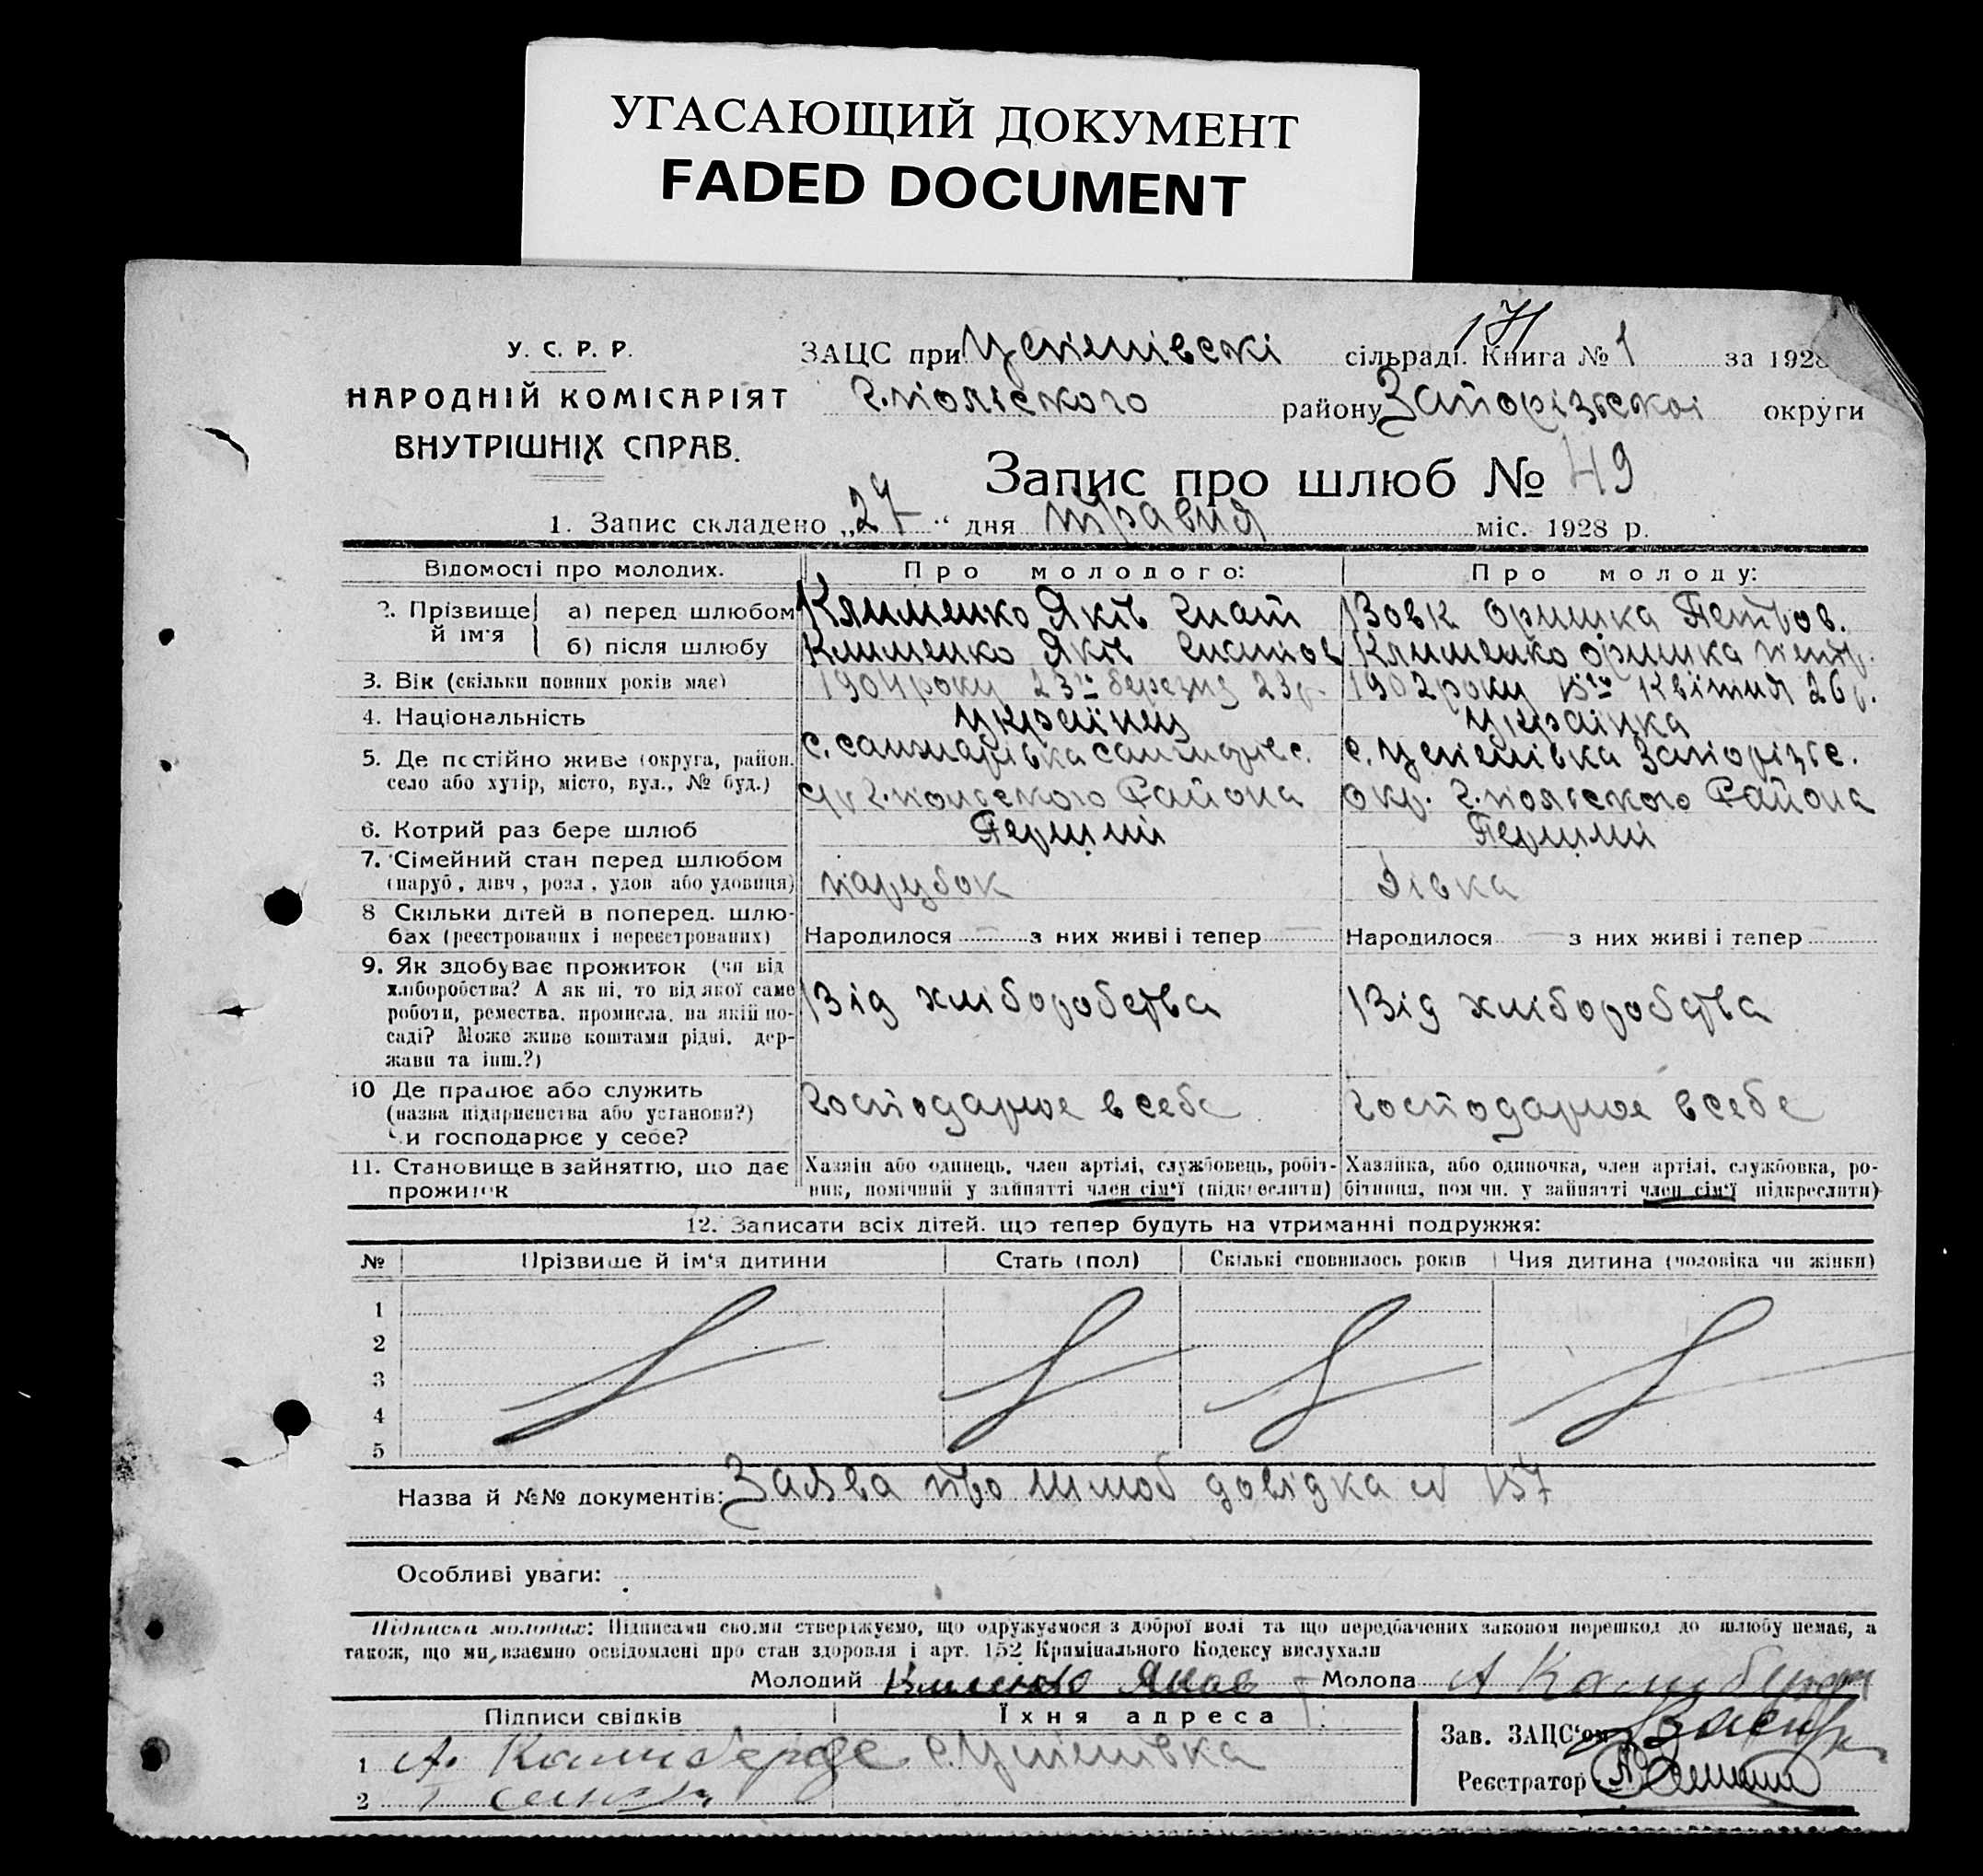 УГАСАЮЩИЙ ДОКУМЕНТ
FADED DOCUMENT
171
У. С. Р. Р.
НАРОДНІЙ КОМІСАРІЯТ
ВНУТРІШНІХ СПРАВ.
ЗАЦС при Успенівскі сільраді. Книга № 1 за 1928
Г.польского району Запорізькоі округи
Запис про шлюб № 49
1. Запис складено „27“ дня травня міс. 1928 р.
Відомості про молодих. Про молодого: Про молоду:
2. Прізвище й ім'я а) перед шлюбом Клименко Яків Гнат Вовк Оришка Петров.
б) після шлюбу Клименко Яків Гнатов Клименко Оришка петр.
3. Вік (скільки повних років має) 1904 року 23го березня 23р. 1902 року 15го Квітня 26 р.
4. Національність українец українка
5. Де постійно живе (округа, район, село або хутір, місто, вул., № буд.) с. с. Успенівка Запорізьс.
Г.польского Района окр. Г.польского Района
6. Котрий раз бере шлюб Перший Перший
7. Сімейний стан перед шлюбом
(паруб., дівч., розл., удов. або удовиця) парубок дівка
8 Скільки дітей в поперед. шлю-
бах (реєстрованих і нереєстрованих) Народилося — з них живі і тепер — Народилося — з них живі і тепер —
9. Як здобуває прожиток (чи від
хліборобства? А як ні, то від якої саме
роботи, ремества, промисла, на якій по-
саді? Може живе коштами рідні, дер-
жави та інш.?) Від хліборобства Від хліборобства
10 Де працює або служить
(назва підприємства або установи?)
Чи господарює у себе? Господарює в себе Господарює в себе
11. Становище в зайняттю, що дає
прожиток
Хазяїн або одинець, член артілі, службовець, робіт-
ник, помічний у зайнятті член сім'ї (підкреслити)
Хазяйка, або одиночка, член артілі, службовка, ро-
бітниця, помічн. у зайнятті член сім'ї підкреслити)
12. Записати всіх дітей, що тепер будуть на утриманні подружжя:
№ Прізвище й ім'я дитини Стать (пол) Скількі сповнилось років Чия дитина (чоловіка чи жінки)
1
2
3
4
5
Назва й №№ документів: Заява про шлюб довідка N 157
Особливі уваги:
Підписка молодих: Підписами своїми стверджуємо, що одружуємося з доброї волі та що передбачених законом перешкод до шлюбу немає, а
також, що ми, взаємно освідомлені про стан здоровля і арт. 152 Кримінального Кодексу вислухали
Молодий Клименко Яков Молода А
Підписи свідків Їхня адреса
1 А. с. Успенівка
2
Зав. ЗАЦС'ом
Реєстратор